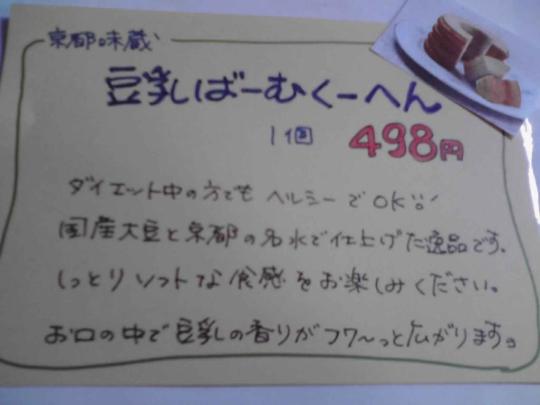 京都味蔵
豆乳ばーむくーへん
1個 498円
ダイエット中の方でもヘルシーでOK!!
国産大豆と京都の名水で仕上げた逸品です。
しっとりソフトな食感をお楽しみください。
お口の中で豆乳の香りがフワ〜っと広がります。